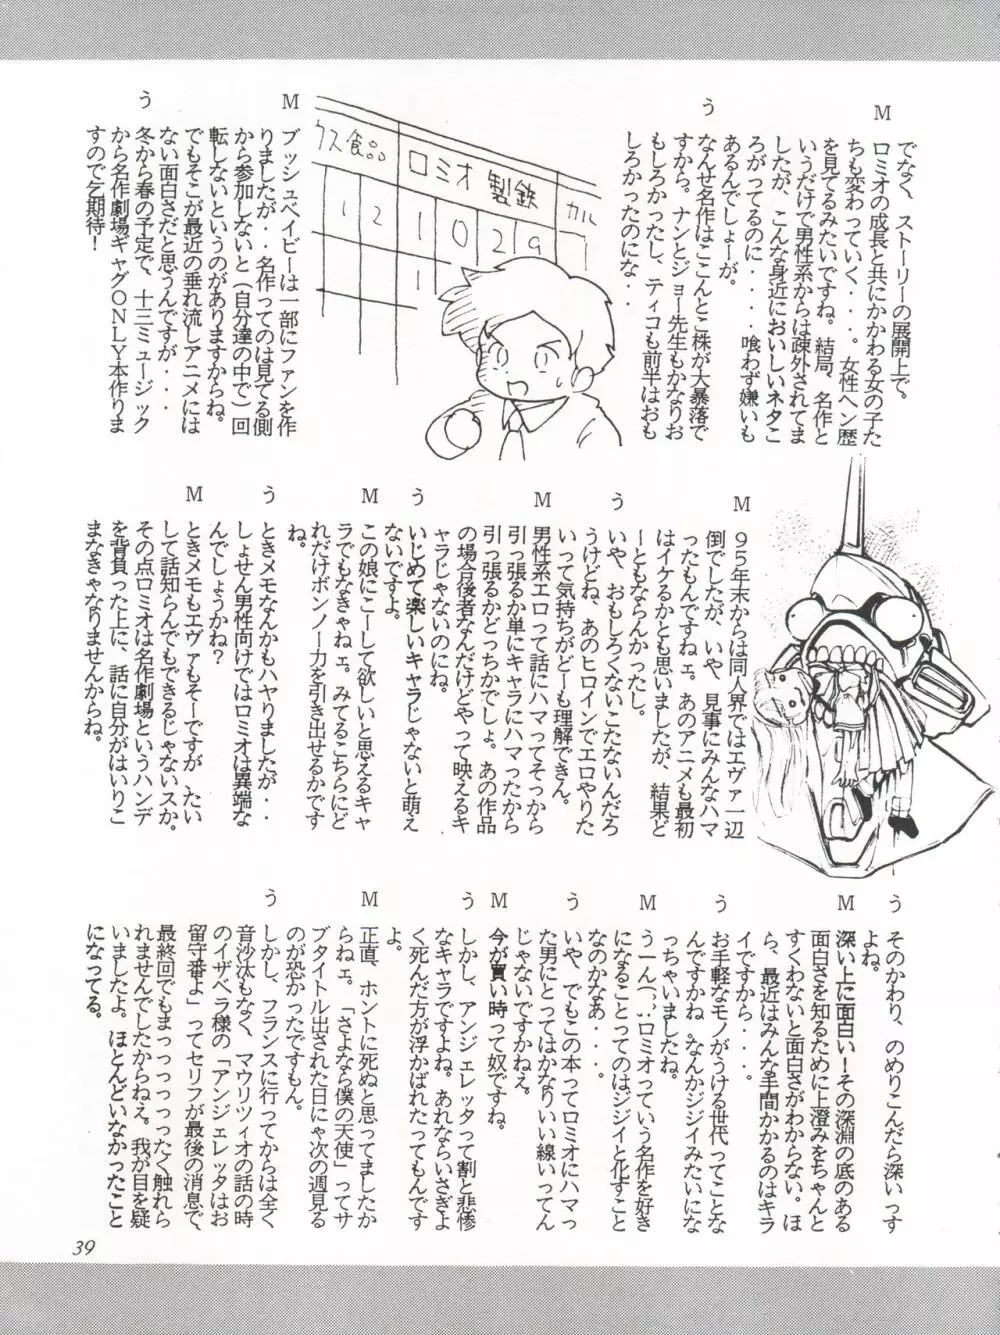 M
でなく、ストーリーの展開上で。
ロミオの成長と共にかかわる女の子た
ちも変わっていく・・・。女性ヘン歴
を見てるみたいですね。結局、名作と
いうだけで男性系からは疎外されてま
したが、こんな身近においしいネタこ
ろがってるのに・・・喰わず嫌いも
あるんでしょーが。
う
なんせ名作はここんとこ株が大暴落で
すから。ナンとジョー先生もかなりお
もしろかったし、ティコも前半はおも
しろかったのにな・・
ウス食品
ロミオ 製鉄
カル
1 2 1 0 2 9
1
M
ブッシュベイビーは一部にファンを作
りましたが・・名作ってのは見てる側
から参加しないと(自分達の中で)回
転しないというのがありますからね。
う
でもそこが最近の垂れ流しアニメには
ない面白さだと思うんですが・・・
冬から春の予定で、十三ミュージック
から名作劇場ギャグONLY本作りま
すので乞期待!
M
95年末からは同人界ではエヴァ一辺
倒でしたが、いや、見事にみんなハマ
ったもんですねェ。あのアニメも最初
はイケるかとも思いましたが、結果ど
ーともならんかったし。
う
いや、おもしろくないこたないんだろ
うけどね、あのヒロインでエロやりた
いって気持ちがどーも理解できん。
M
男性系エロって話にハマってそっから
引っ張るか単にキャラにハマったから
引っ張るかどっちかでしょ。あの作品
の場合後者なんだけどやって映えるキ
ャラじゃないのにね。
う
いじめて楽しいキャラじゃないと萌え
ないですよ。
M
この娘にこーして欲しいと思えるキャ
ラでもなきゃねェ。みてるこちらにど
れだけボンノー力を引き出せるかです
ね。
う
ときメモなんかもハヤりましたが・・
しょせん男性向けではロミオは異端な
んでしょうかね?
M
ときメモもエヴァもそーですが、たい
して話知らんでもできるじゃないスか。
その点ロミオは名作劇場というハンデ
を背負った上に、話に自分がはいりこ
まなきゃなりませんからね。
う
そのかわり、のめりこんだら深いっす
よね。
M
深い上に面白い!その深淵の底のある
面白さを知るために上澄みをちゃんと
すくわないと面白さがわからない。ほ
ら、最近はみんな手間かかるのはキラ
イですから・・・
う
お手軽なモノがうける世代ってことな
んですかね。なんかジジイみたいにな
っちゃいましたね。
M
うーん(‥;ロミオっていう名作を好き
になることってのはジジイと化すこと
なのかなあ・・・。
う
いや、でもこの本ってロミオにハマっ
た男にとってはかなりいい線いってん
じゃないですかねえ。
M
今が買い時って奴ですね。
う
しかし、アンジェレッタって割と悲惨
なキャラですよね。あれならいさぎよ
く死んだ方が浮かばれたってもんです
よ。
M
正直、ホントに死ぬと思ってましたか
らねェ。「さよなら僕の天使」ってサ
ブタイトル出された日にゃ次の週見る
のが恐かったですもん。
う
しかし、フランスに行ってからは全く
音沙汰もなく、マウリツィオの話の時
のイザベラ様の「アンジェレッタはお
留守番よ」ってセリフが最後の消息で、
最終回でもまっっっっったく触れら
れませんでしたからねえ。我が目を疑
いましたよ。ほとんどいなかったこと
になってる。
39